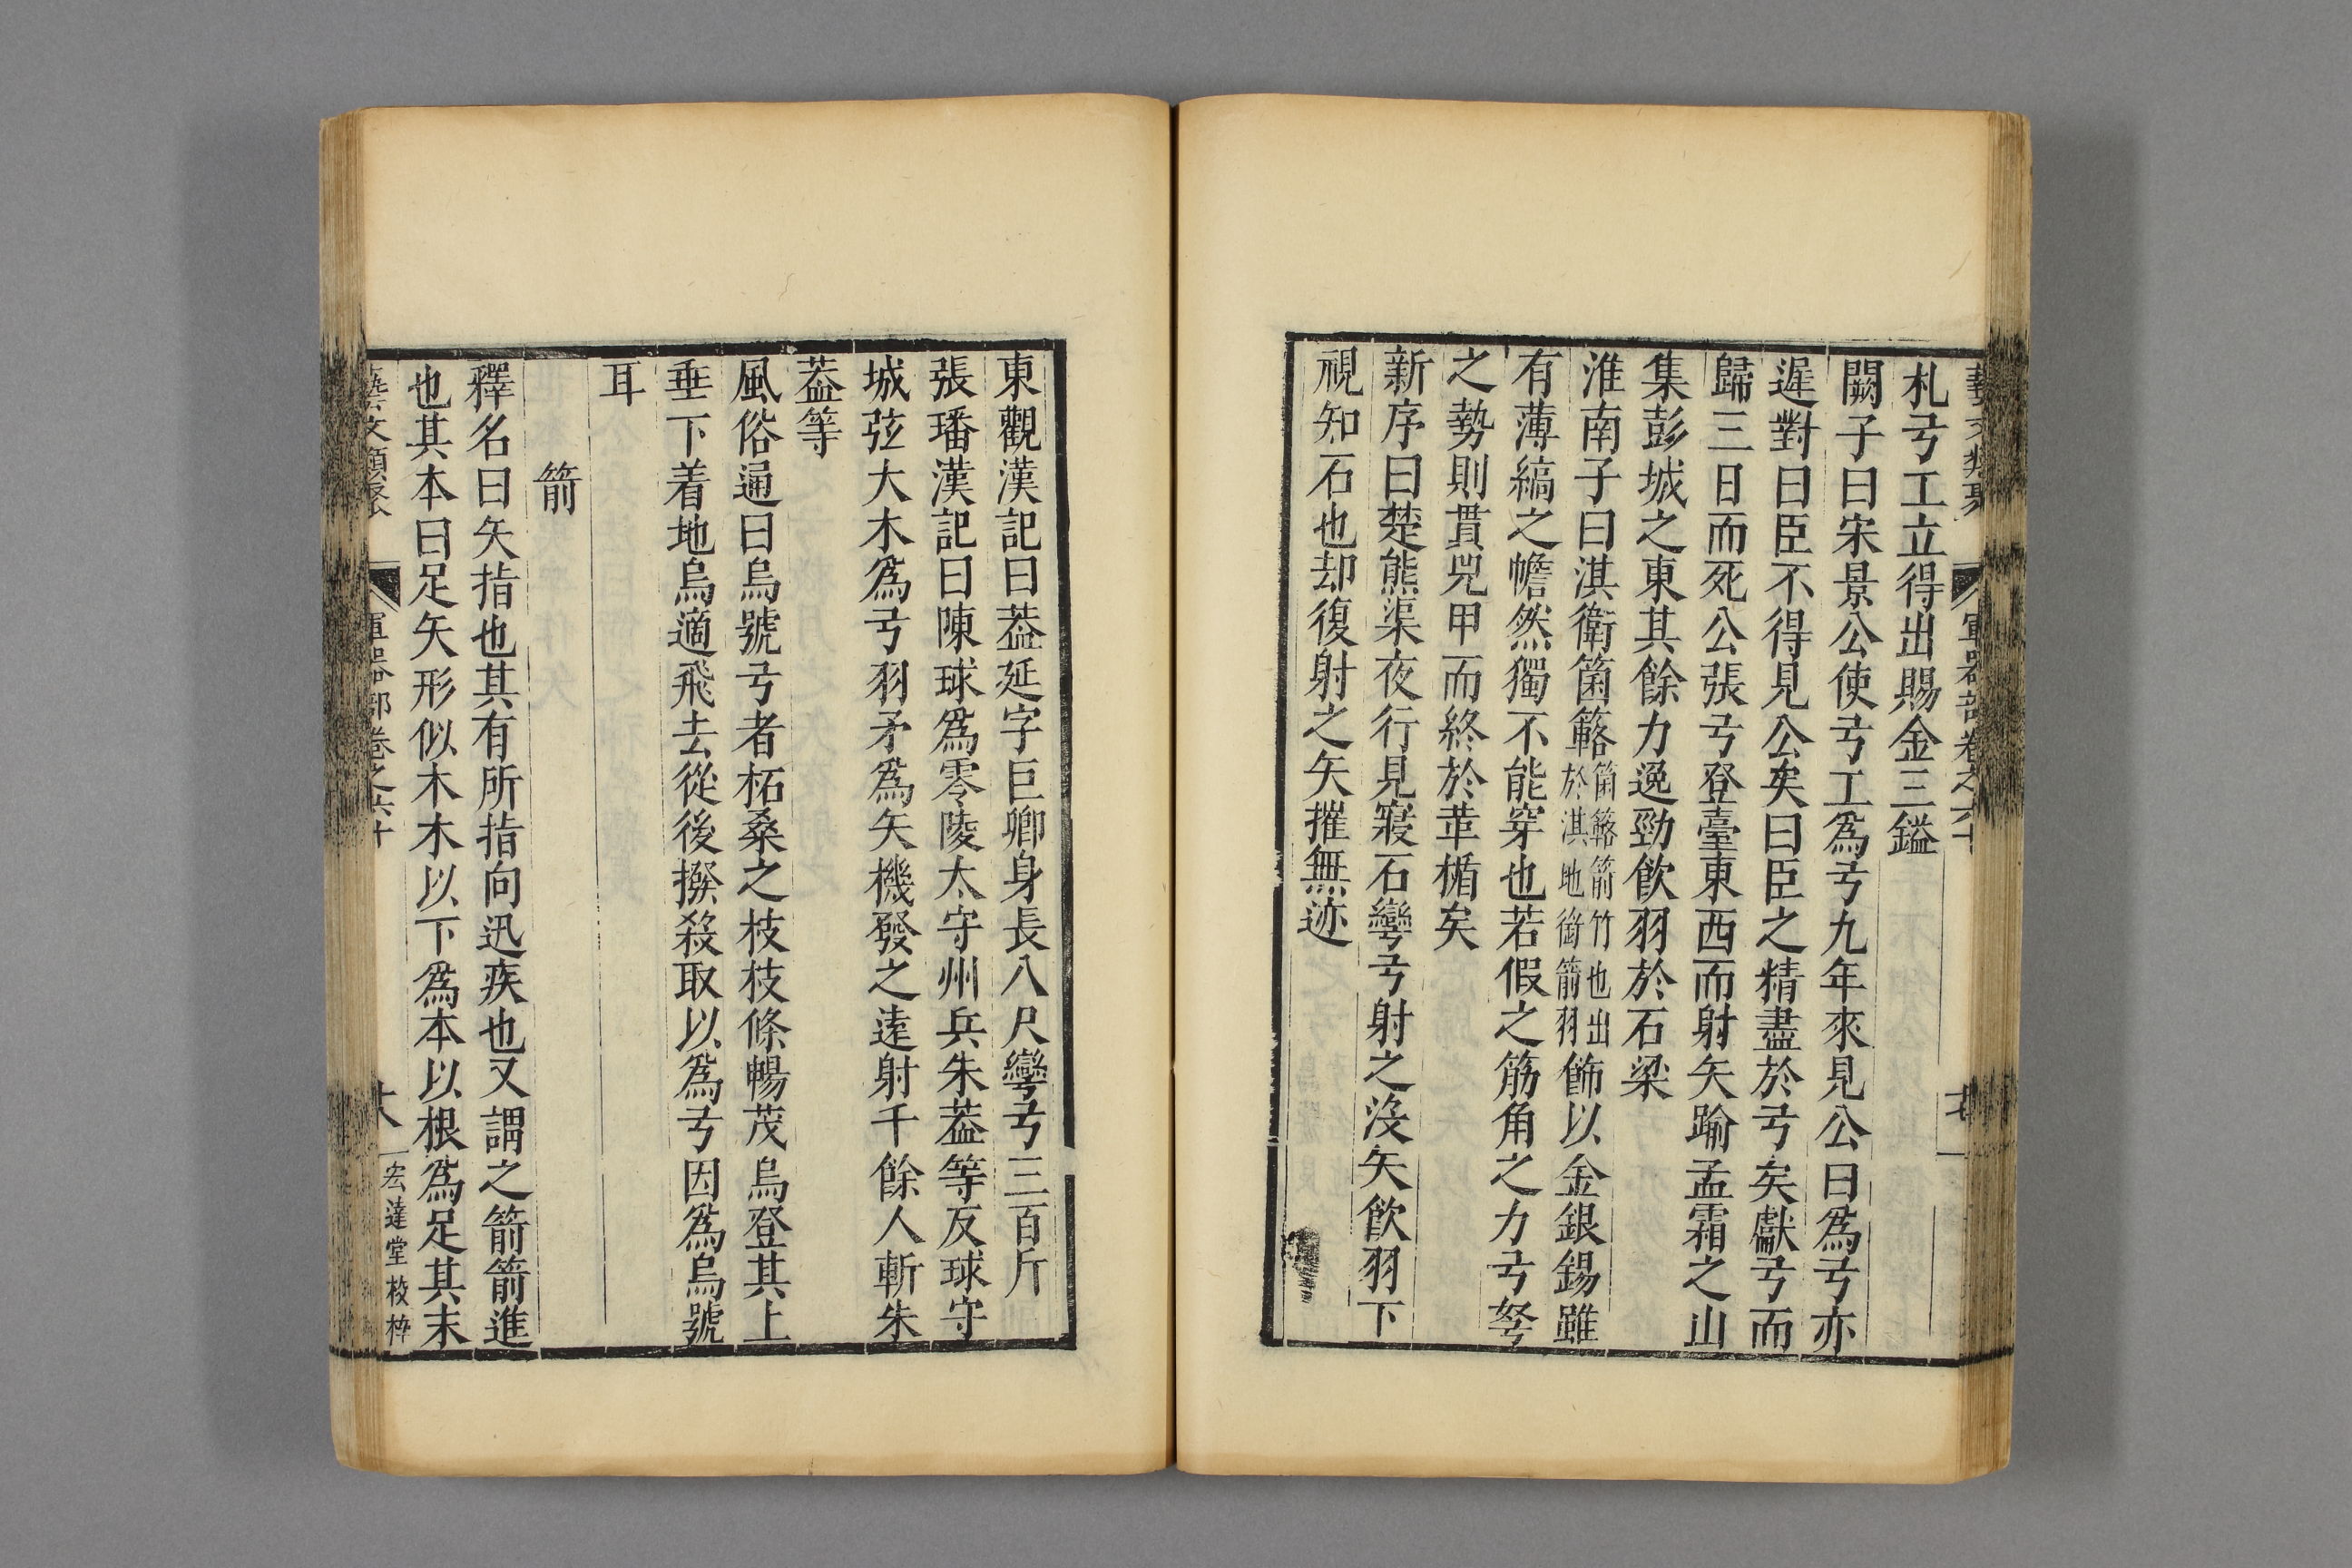 藝文類聚 軍器部卷之六十
札弓工立得出賜金三鎰
闕子曰宋景公使弓工爲弓九年來見公曰爲弓亦
遲對曰臣不得見公矣曰臣之精盡於弓矣獻弓而
歸三日而死公張弓登臺東西而射矢踰孟霜之山
集彭城之東其餘力逸勁飮羽於石梁
淮南子曰淇衛箘簵箘簵箭竹也出於淇地衛箭羽飾以金銀錫雖
有薄縞之幨然獨不能穿也若假之筋角之力弓弩
之勢則貫兕甲而終於革楯矣
新序曰楚熊渠夜行見寢石彎弓射之沒矢飮羽下
視知石也却復射之矢摧無迹
東觀漢記曰葢延字巨卿身長八尺彎弓三百斤
張璠漢記曰陳球爲零陵太守州兵朱葢等反球守
城弦大木爲弓羽矛爲矢機發之遠射千餘人斬朱
葢等
風俗通曰烏號弓者柘桑之枝枝條暢茂烏登其上
垂下着地烏適飛去從後撥殺取以爲弓因爲烏號
耳
箭
釋名曰矢指也其有所指向迅疾也又謂之箭箭進
也其本曰足矢形似木木以下爲本以根爲足其末
藝文類聚 軍器部卷之六十 宏達堂校梓